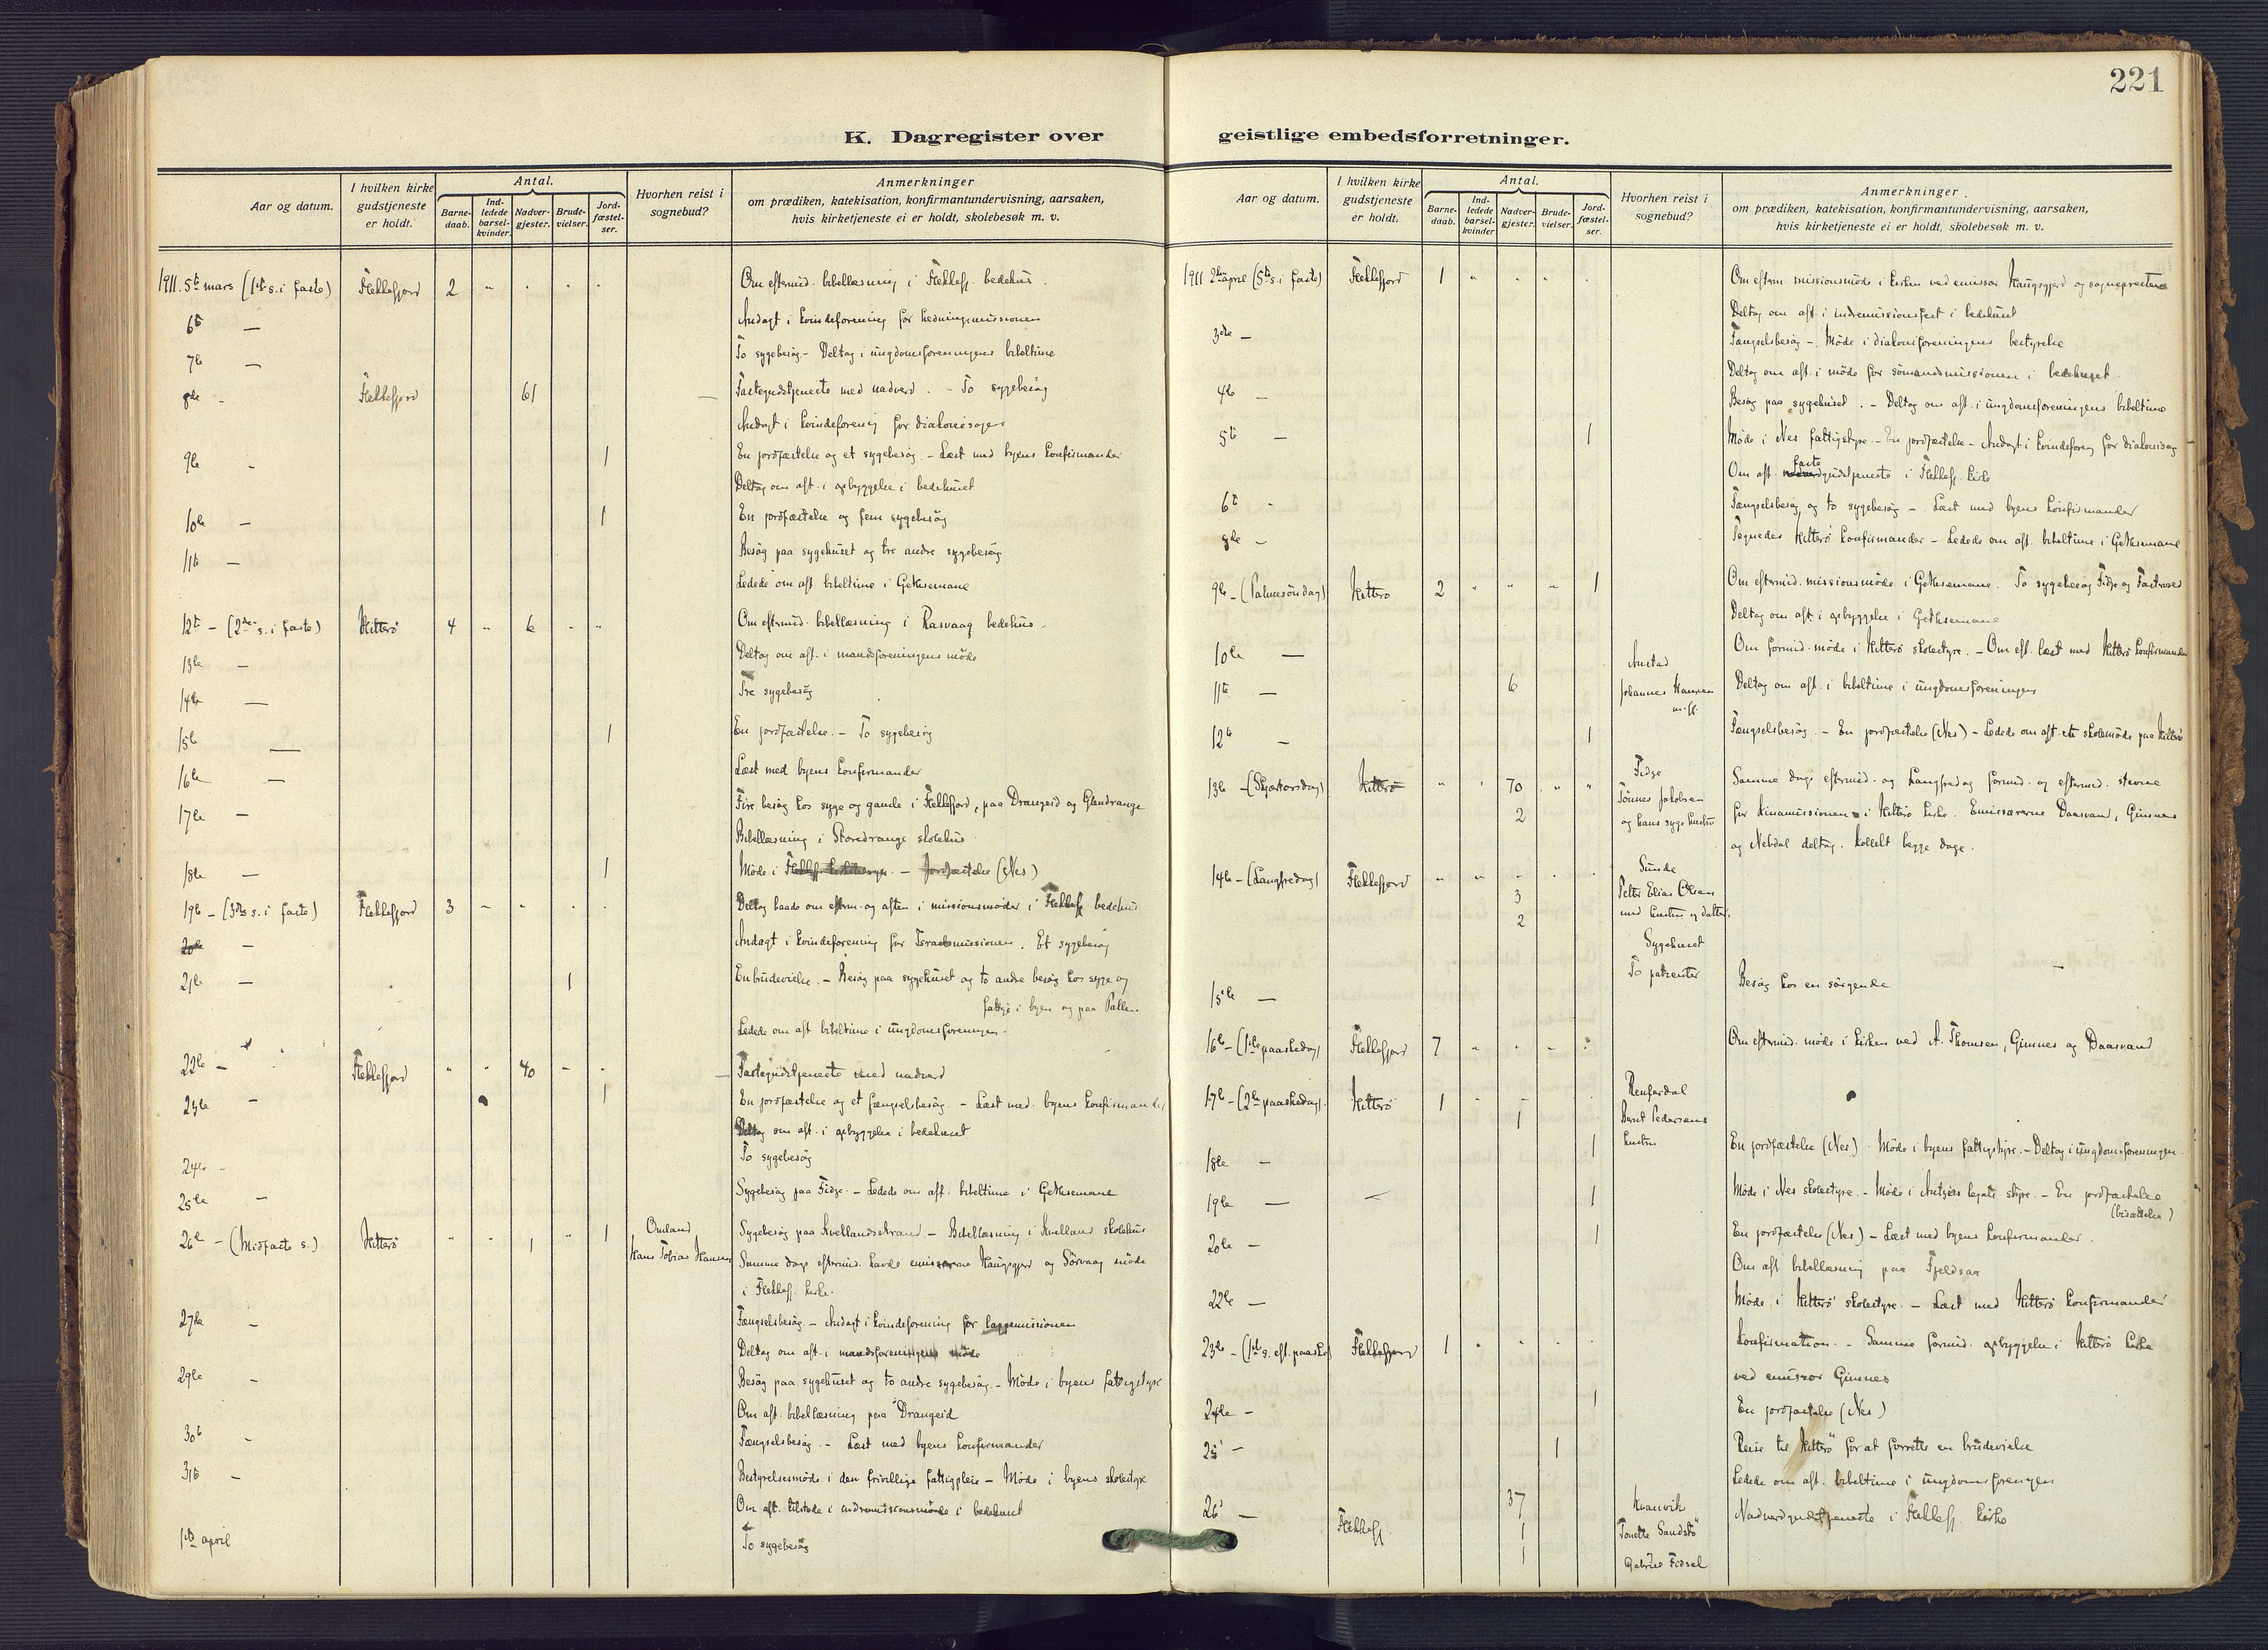 221
K. Dagregister over
geistlige embedsforretninger.
Aar og datum.
I hvilken kirke gudstjeneste er holdt.
Antal.
Barne-daab.
Ind-ledede barsel-kvinder.
Nadver-gjester.
Brude-vielser.
Jord-fæstel-ser.
Hvorhen reist i sognebud?
Anmerkninger
om prædiken, katekisation, konfirmantundervisning, aarsaken,
hvis kirketjeneste ei er holdt, skolebesøk m. v.
1911. 5te mars (1ste s. i faste) Flekkefjord 2 " " " " Om eftermid. bibellæsning i Flekkefj. bedehus.
6te — Andagt i kvindeforening for hedningemissionen
7de — To sygebesøg – Deltag i ungdomsforeningens bibeltime
8de - Flekkefjord 61 Fastegudstjeneste med nadverd. – To sygebesøg
Andagt i kvindeforening for diakonisagen
9de - 1 En jordfæstelse og et sygebesøg. – Læst med byens konfirmander
Deltag om aft. i opbyggelse i bedehuset
10de — 1 En jordfæstelse og fem sygebesøg
11te — Besøg paa sygehuset og tre andre sygebesøg
Ledede om aft. bibeltime i Gethsemane
12te – (2den s. i faste) Hitterö 4 " 6 " " Om eftermid. bibellæsning i Rasvaag bedehus.
13de — Deltag om aft. i mandsforeningens møde
14de — Tre sygebesøg
15de — 1 En jordfæstelse. – To sygebesøg
16de — Læst med byens konfirmander
17de — Fire besøg hos syge og gamle i Flekkefjord, paa Drangeid og Glendrange
Bibellæsning i Storedrange skolehus
18de — 1 Møde i Flekkefj. – Jordfæstelse (Nes)
19de – (3die s. i faste) Flekkefjord 3 " " " " Deltag baade om efterm. og aften i missionsmøder i Flekkefj. bedehus
20de — Andagt i kvindeforening for Israelsmissionen. Et sygebesøg
21de — 1 En brudevielse. – Besøg paa sygehuset og to andre besøg hos syge og
fattige i byen og paa
Ledede om aft bibeltime i ungdomsforeningen.
22de – Flekkefjord " " 40 " " Fastegudstjeneste med nadverd
23de - 1 En jordfæstelse og et fængselsbesøg. – Læst med byens konfirmander
Deltag om aft. i opbyggelse i bedehuset
24de - To sygebesøg
25de — Sygebesøg paa Fidge. – Ledede om aft. bibeltime i Gethsemane
26de – (Midfaste s.) Hitterö " " 1 " 1 Omland Sygebesøg paa Kvellandsstrand. – Bibellæsning i Kvelland skolehus
Hans Tobias Hansen Samme dags eftermid. havde emissærerne Haugsgjerd og Sörvaag møde
i Flekkefj. kirke.
27de - Fængselsbesøg. – Andagt i kvindeforening for lappemissionen
Deltag om aft. i mandsforeningens møde
29de - Besøg paa sygehuset og to andre sygebesøg. – Møde i byens fattigstyre
Om aft. bibellæsning paa Drangeid
30te - Fængselsbesøg. – Læst med byens konfirmander
31te - Bestyrelsesmøde i den frivillige fattigpleie – Møde i byens skolestyre
Om aft. tilstede i indremissionsmøde i bedehuset
1ste april To sygebesøg
Aar og datum.
I hvilken kirke gudstjeneste er holdt.
Antal.
Barne-daab.
Ind-ledede barsel-kvinder
Nadver-gjester.
Brude-vielser.
Jord-fæstel-ser.
Hvorhen reist i sognebud?
Anmerkninger.
om prædiken, katekisation, konfirmantundervisning, aarsaken,
hvis kirketjeneste ei er holdt, skolebesøk m. v.
1911 2den april (5te s. i faste) Flekkefjord 1 " " " Om efterm. missionsmøde i kirken ved emissær Haugsgjerd og sognepresten
Deltag om aft. i indremissionsfest i bedehuset
3die — Fængselsbesøg –. Møde i diakoniforeningens bestyrelse
Deltag om aft. i møde for sömandsmissionen i bedehuset.
4de — Besøg paa sygehuset. – Deltag om aft. i ungdomsforeningens bibeltime
5te — 1 Møde i Nes fattigstyre. – En jordfæstelse – Andagt i kvindeforeng for diakonisag
Om aft. fastegudstjeneste i Flekkefj. kirke
6te - Fængselsbesøg og to sygebesøg – Læst med byens konfirmander
8de – Tegnedes Hitterö konfirmander – Ledede om aft. bibeltime i Gethsemane
9de – (Palmesöndag) Hitterö 2 " " " 1 Om eftermid. missionsmøde i Gethsemane. To sygebesøg Fidge og
Deltag om aft. i opbyggelse i Gethsemane
10de — Om formid. møde i Hitterö skolestyre. – Om eft. læst med Hitterö konfirmander
11te — 6 Anstad Johannes Hansen m. fl. Deltag om aft. i bibeltime i ungdomsforeningen
12te — 1 Fængselsbesøg. – En jordfæstelse (Nes) – Ledede om aft. et skolemøde paa Hitterö
13de – (Skjærtorsdag) Hitterö " " 70 " " Fidge Samme dags eftermid. og Langfredag formid. og eftermid. stevne
2 Tönnes Jakobsen og hans syge hustru for Kinamissionen i Hitterö kirke. Emissærerne Daasvand, Gimnes
og Nebdal deltog. Kollekt begge dage.
14de – (Langfredag) Flekkefjord " " " " Sunde
3 Peter Elias Olsen
2 med hustru og datter.
Sygehuset
To patienter
15de — Besøg hos en sörgende
16de – (1ste paaskedag) Flekkefjord 7 " " " " Om eftermid. møde i kirken ved A. Thomsen, Gimnes og Daasvand
17de – (2den paaskedag). Hitterö 1 " " 1 Bernt Pedersens hustru
18de — 1 En jordfæstelse (Nes). Møde i byens fattigstyre. – Deltag i ungdomsforeningen.
19de — 1 Møde i Nes skolestyre. – Møde i legats styre. – En jordfæstelse
(bisættelse)
20de — 1 En jordfæstelse (Nes) – Læst med byens konfirmander.
Om aft bibellæsning paa Fjeldsaa
22de — Møde i Hitterö skolestyre. – Læst med Hitterö konfirmander
23de – (1ste s. eft. paaske) Flekkefjord 1 " " " " Konfirmation. – Samme formid. opbyggelse i Hitterö kirke
ved emissær Gimnes
24de – 1 En jordfæstelse (Nes)
25' — 1 Reise til Hitterö for at forrette en brudevielse
Ledede om aft. bibeltime i ungdomsforeningen
26' — Flekkefj. 37 Kvanvik Nadverdgudstjeneste i Flekkefj. kirke
1 Tonette Sandstö
1 Gabriel Fidsel